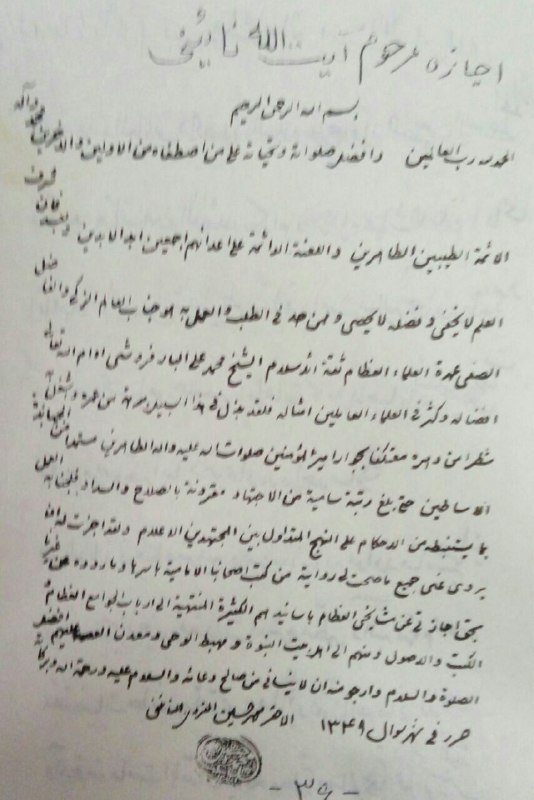 اجازه مرحوم آیت الله نائینی
بسم الله الرحمن الرحیم
الحمد لله رب العالمین وافضل صلواته وتحیاته علی من اصطفاه من الاولین والاخرین محمد وآله
الائمة الطیبین الطاهرین واللعنة الدائمة علی اعدائهم اجمعین ابد الابدین وبعد فان شرف
العلم لا یخفی وفضله لا یحصی وممن جد فی الطلب والعمل به هو جناب العالم الزکی والفاضل
الصفی عمدة العلماء العظام ثقة الاسلام الشیخ محمد علی البار فروشی ادام الله تعالی
افضاله وکثر فی العلماء العاملین امثاله فلقد بذل فی هذا السبیل برهة من عمره واشتغل
شطرا من دهره معتکفا بجوار امیر المؤمنین صلوات الله علیه واله الطاهرین مستمدا من الجهابذة
الاساطین حتی بلغ رتبة سامیة من الاجتهاد مقرونة بالصلاح والسداد فلجنابه العمل
بما یستنبطه من الاحکام علی النهج المتداول بین المجتهدین الاعلام ولقد اجزت له ان
یروی عنی جمیع ما صحت لی روایة من کتب اصحابنا الامامیة باسرها وما رووه عن غیرنا
بحق اجازتی عن مشایخی العظام باسانیدهم الکثیرة المنتهیة الی ارباب الجوامع العظام
الکتب والاصول ومنهم الی اهل بیت النبوة ومهبط الوحی ومعدن العصمة علیهم افضل
الصلوة والسلام وارجو منه ان لا ینسانی من صالح دعائه والسلام علیه ورحمة الله وبرکاته
حرر فی شهر شوال ۱۳۴۹ الاحقر محمد حسین الغروی النائینی
- ۳۵ -